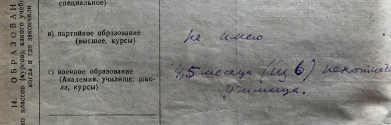 специальное)
в) партийное обрзование
(высшее, курсы)
не имею
г) военное образование
(Академии, училище, шко-
ла, курсы)
4,5 месяца (из 6) пехотного
училища.
14. ОБРАЗОВАН
о классов (курсов), какого учеб
когда и где закончили